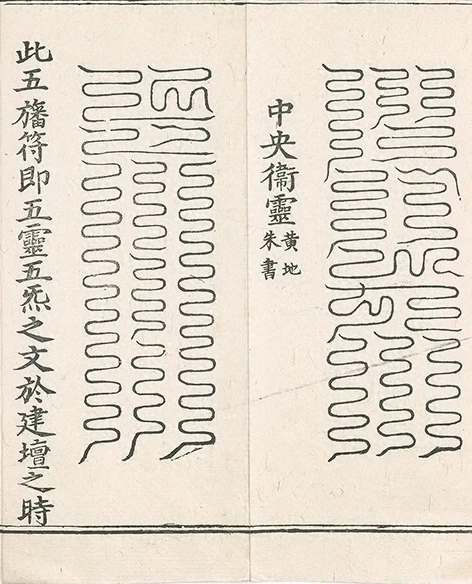 中央衞靈
黃地
朱書
此五旛符即五靈五炁之文於建壇之時